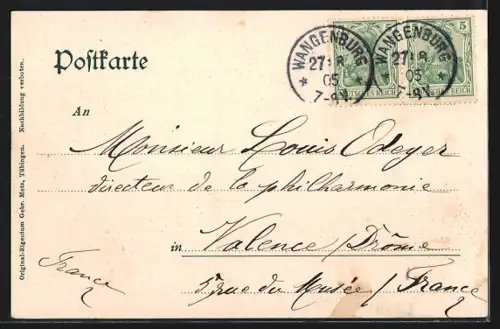 Postkarte
WANGENBURG
27
05
7-8V.
WANGENBURG
27
05
7-8V.
5
5
DEUTSCHES REICH
REICH
An
Monsieur Louis Odeyer
directeur de la philharmonie
in Valence / Drôme
5 rue du Musée / France
France
Original-Eigentum Gebr. Metz, Tübingen. Nachbildung verboten.